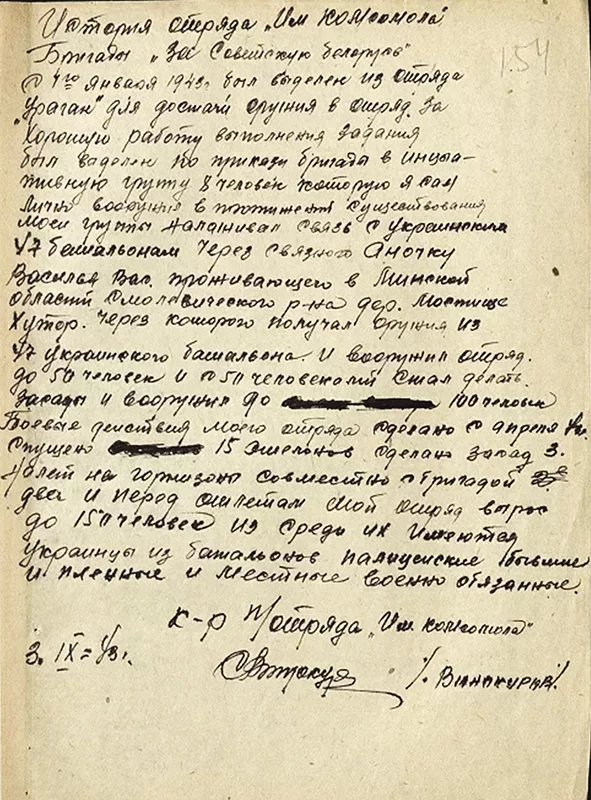 История отряда „Им комсомола"
Бригады „За Советскую белорусь"
154
С 4го Января 1943г был выделен из отряда
„Ураган" для достачи оружия в отряд. За
Хорошую работу выполнения задания
был выделен по приказу бригады в инцыа-
тивную групу 8 человек которую я сам
Лично вооружив в протяжении существования
Моей групы налаживал связь с Украинским
47 батальонам Через связного Аночку
Василья Вас. проживающего в Минской
области Смолевического р-на дер. Мостище
Хутор. Через которого получал оружия из
47 Украинского батальона. И вооружил отряд.
до 50 человек и с 50 человеками стал делать.
Засады и вооружил до 100 человек
Боевые действия моего отряда сделано с апреля
Спущено 15 Эшелонов сделано засад 3.
Налет на горнизоны совместно с бригадой
два и перед отлетам мой отряд вырос
до 150 человек из среды их имеются
Украинцы из батальонов палицейские бывшие
и пленные и местные военно обязанные.
к-р п/отряда „Им. комсомола"
3. IX = 43г.
/. Винакуров/.